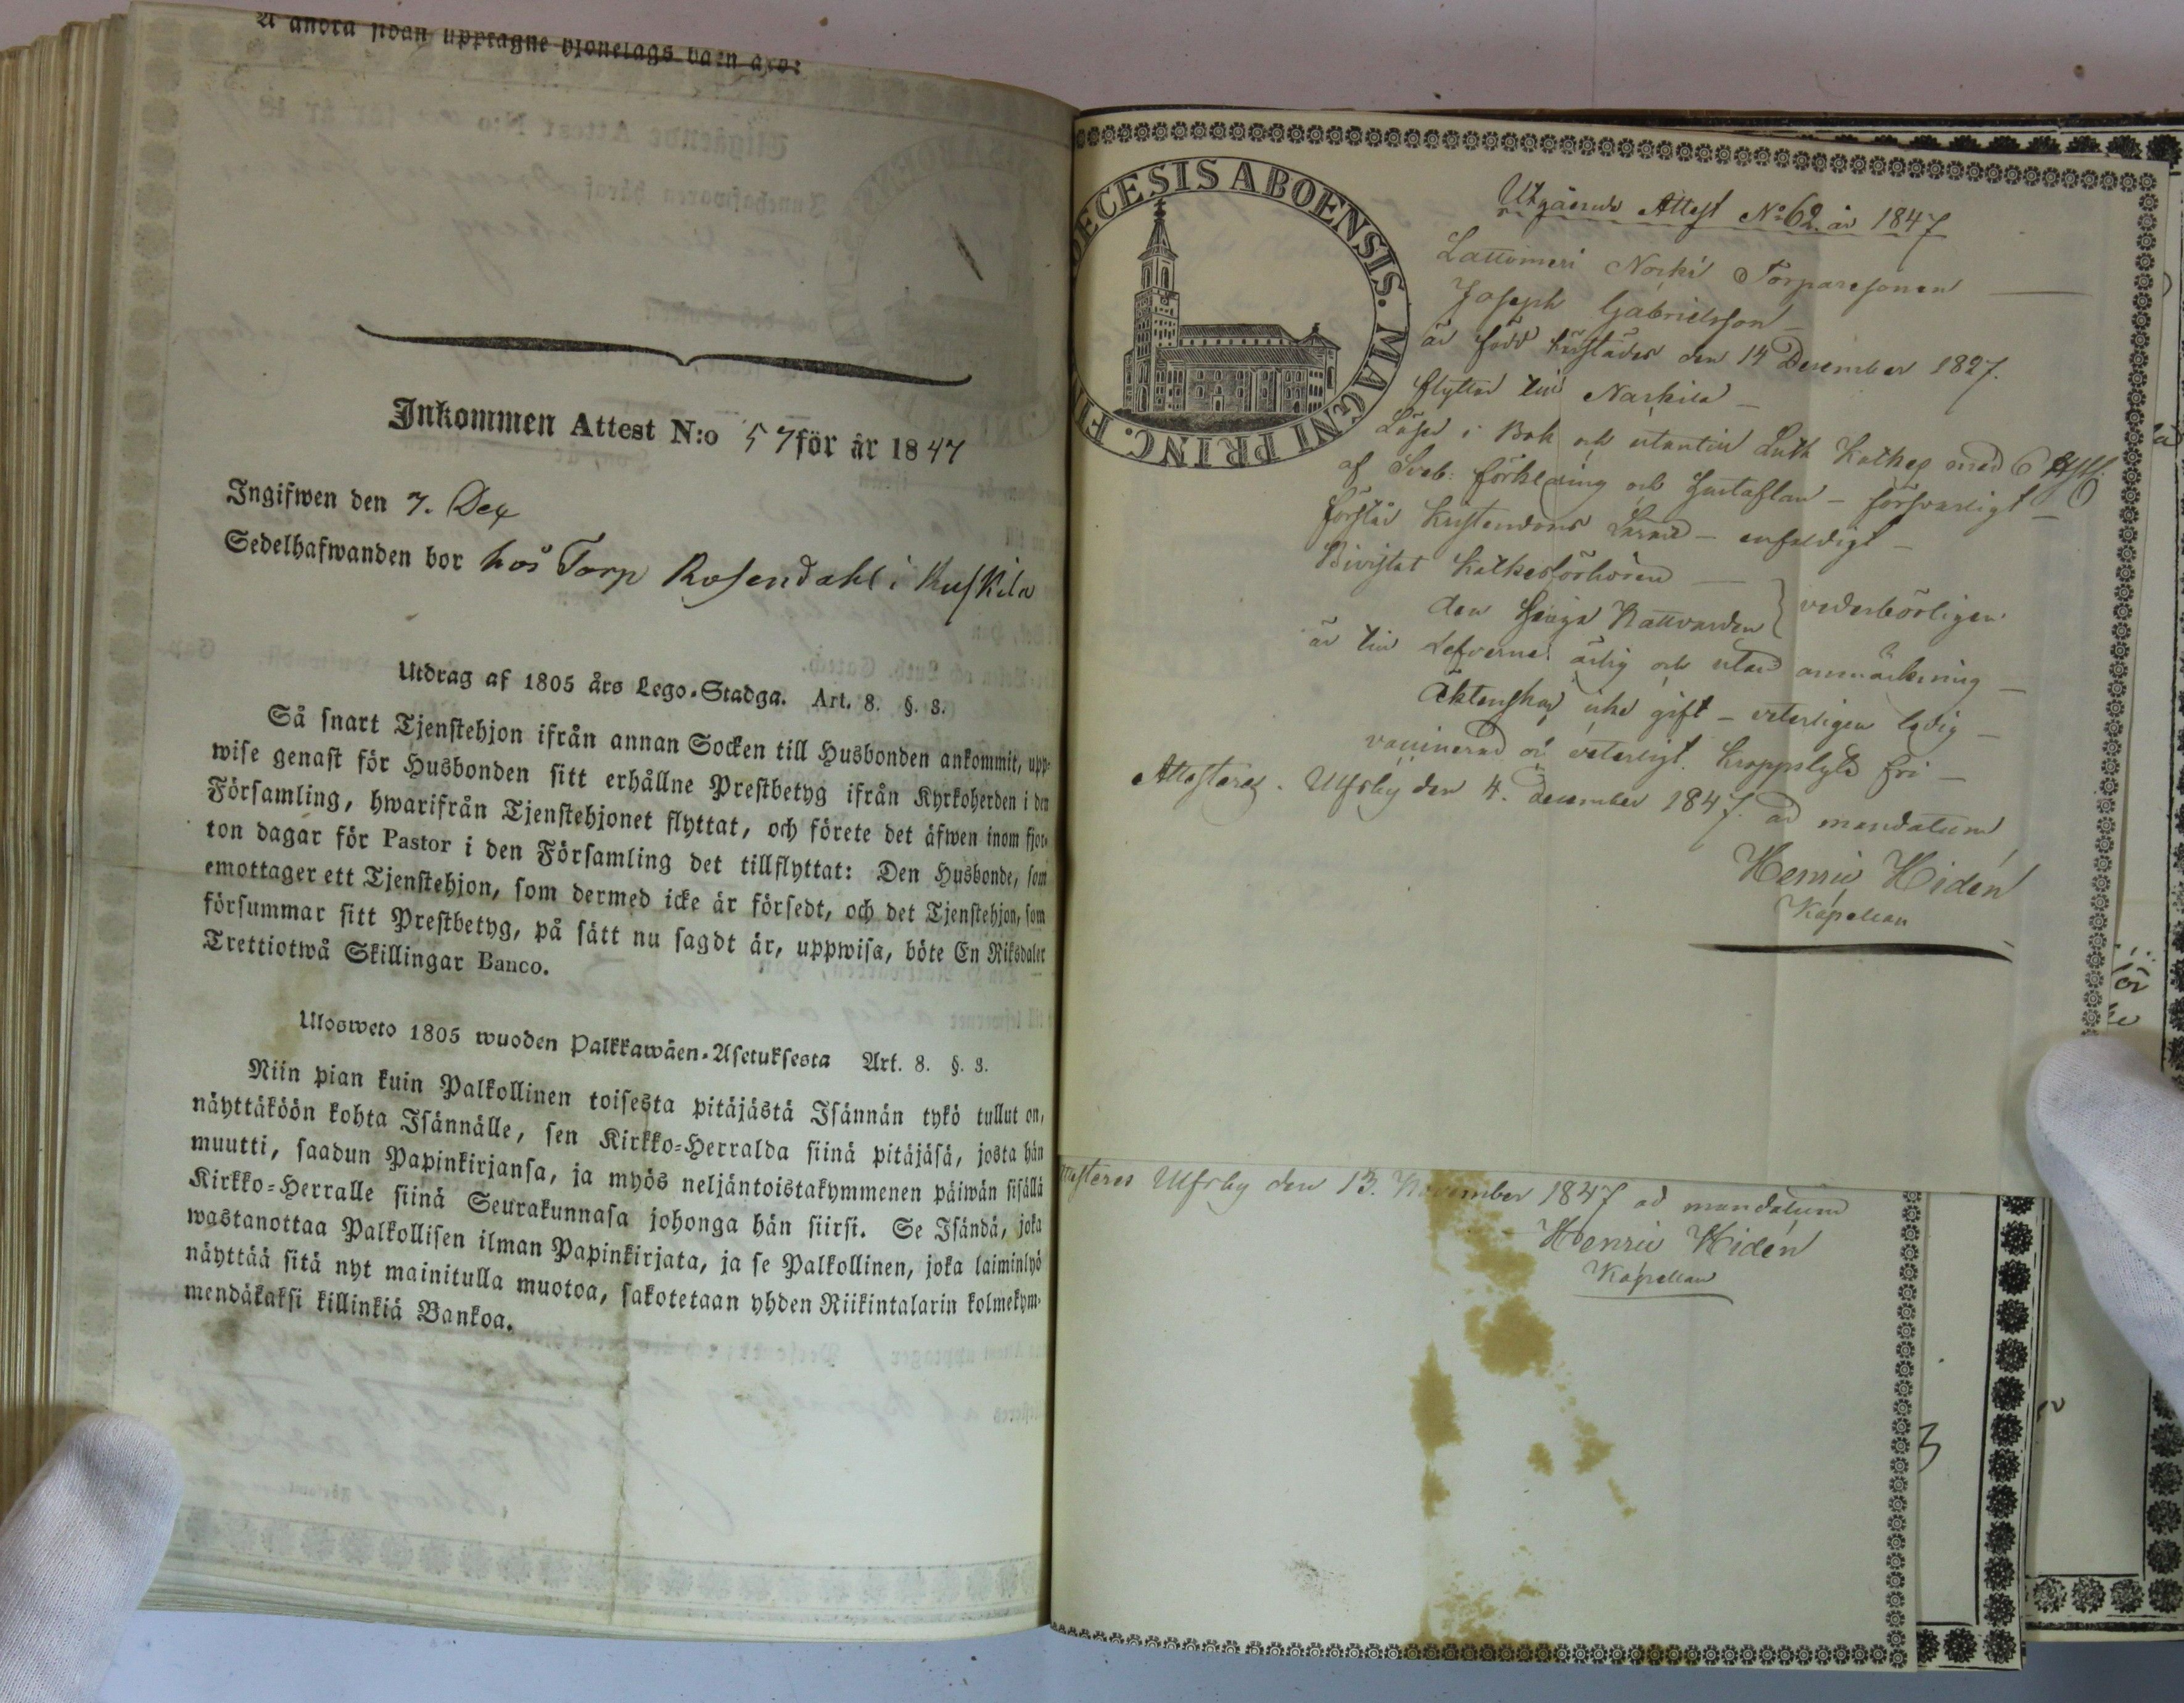 Å andra sidan upptagne hjonelags barn äro:
Inkommen Attest N:o 57 för år 1847
Ingifwen den 7. Dec
Sedelhafwanden bor hos Torp Rosendahl i Kuskila
Utdrag af 1805 års Lego-Stadga. Art. 8. §. 3.
Så snart Tjenstehjon ifrån annan Socken till Husbonden ankommit, upp-
wise genast för Husbonden sitt erhållne Prestbetyg ifrån Kyrkoherden i den
Församling, hwarifrån Tjenstehjonet flyttat, och förete det äfwen inom fjor-
ton dagar för Pastor i den Församling det tillflyttat: Den Husbonde, som
emottager ett Tjenstehjon, som dermed icke är försedt, och det Tjenstehjon, som
försummar sitt Prestbetyg, på sätt nu sagdt är, uppwisa, böte En Riksdaler
Trettiotwå Skillingar Banco.
Ulosweto 1805 wuoden Palkkawäen-Asetuksesta Art. 8. §. 3.
Niin pian kuin Palkollinen toisesta pitäjästä Isännän tykö tullut on,
näyttäköön kohta Isännälle, sen Kirkko-Herralda siinä pitäjäsä, josta hän
muutti, saadun Papinkirjansa, ja myös neljäntoistakymmenen päiwän sisällä
Kirkko-Herralle siinä Seurakunnasa johonga hän siirsi. Se Isändä, joka
wastanottaa Palkollisen ilman Papinkirjata, ja se Palkollinen, joka laiminlyö
näyttää sitä nyt mainitulla muotoa, sakotetaan yhden Riikintalarin kolmekym-
mendäkaksi killinkiä Bankoa.
DIOECESIS ABOENSIS. MAGNI PRINC. FIN
Utgående Attest No 62. år 1847
Lattomeri Norki Torparesonen
Joseph Gabrielsson
är född härstädes den 14 December 1827.
flyttar till Narkila
Läser i Bok och utantill Luth Katkes med
af Sveb: förklaring och Hustaflan - försvarligt
förstår Kristendoms Läran - enfaldigt
Bivistat Katkesförhören
den Heliga Nattvarden } vederbörligen
är till Lefverne ärlig och utan anmärkning
Äktenskap icke gift - veterligen ledig
vaccinerad och veterligt kroppslyte fri
Attesteras. Ulfsby den 4. december 1847. ad mandatum
Henric Hidén
Kapellan
Attesteras Ulfsby den 13. November 1847 ad mandatum
Henric Hidén
Kapellan